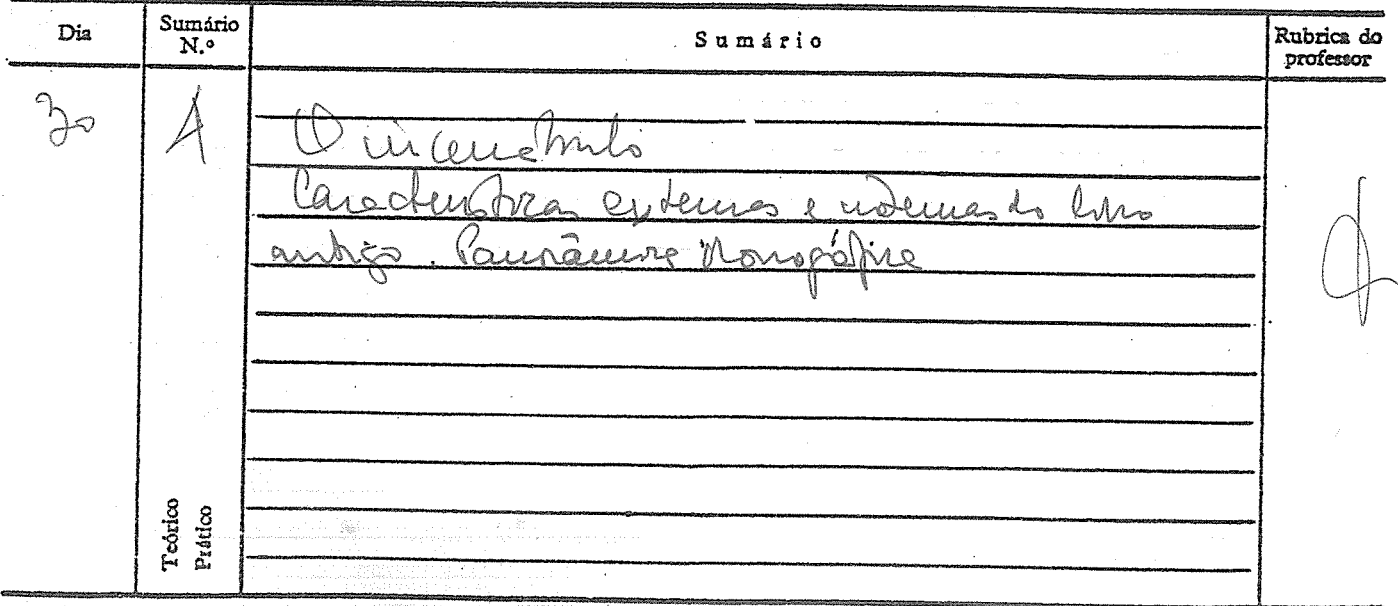 Dia
Sumário N.º
Sumário
Rubrica do professor
30
O incunábulo
Características externas e internas do livro
antigo. Panorâmica
Teórico
Prático